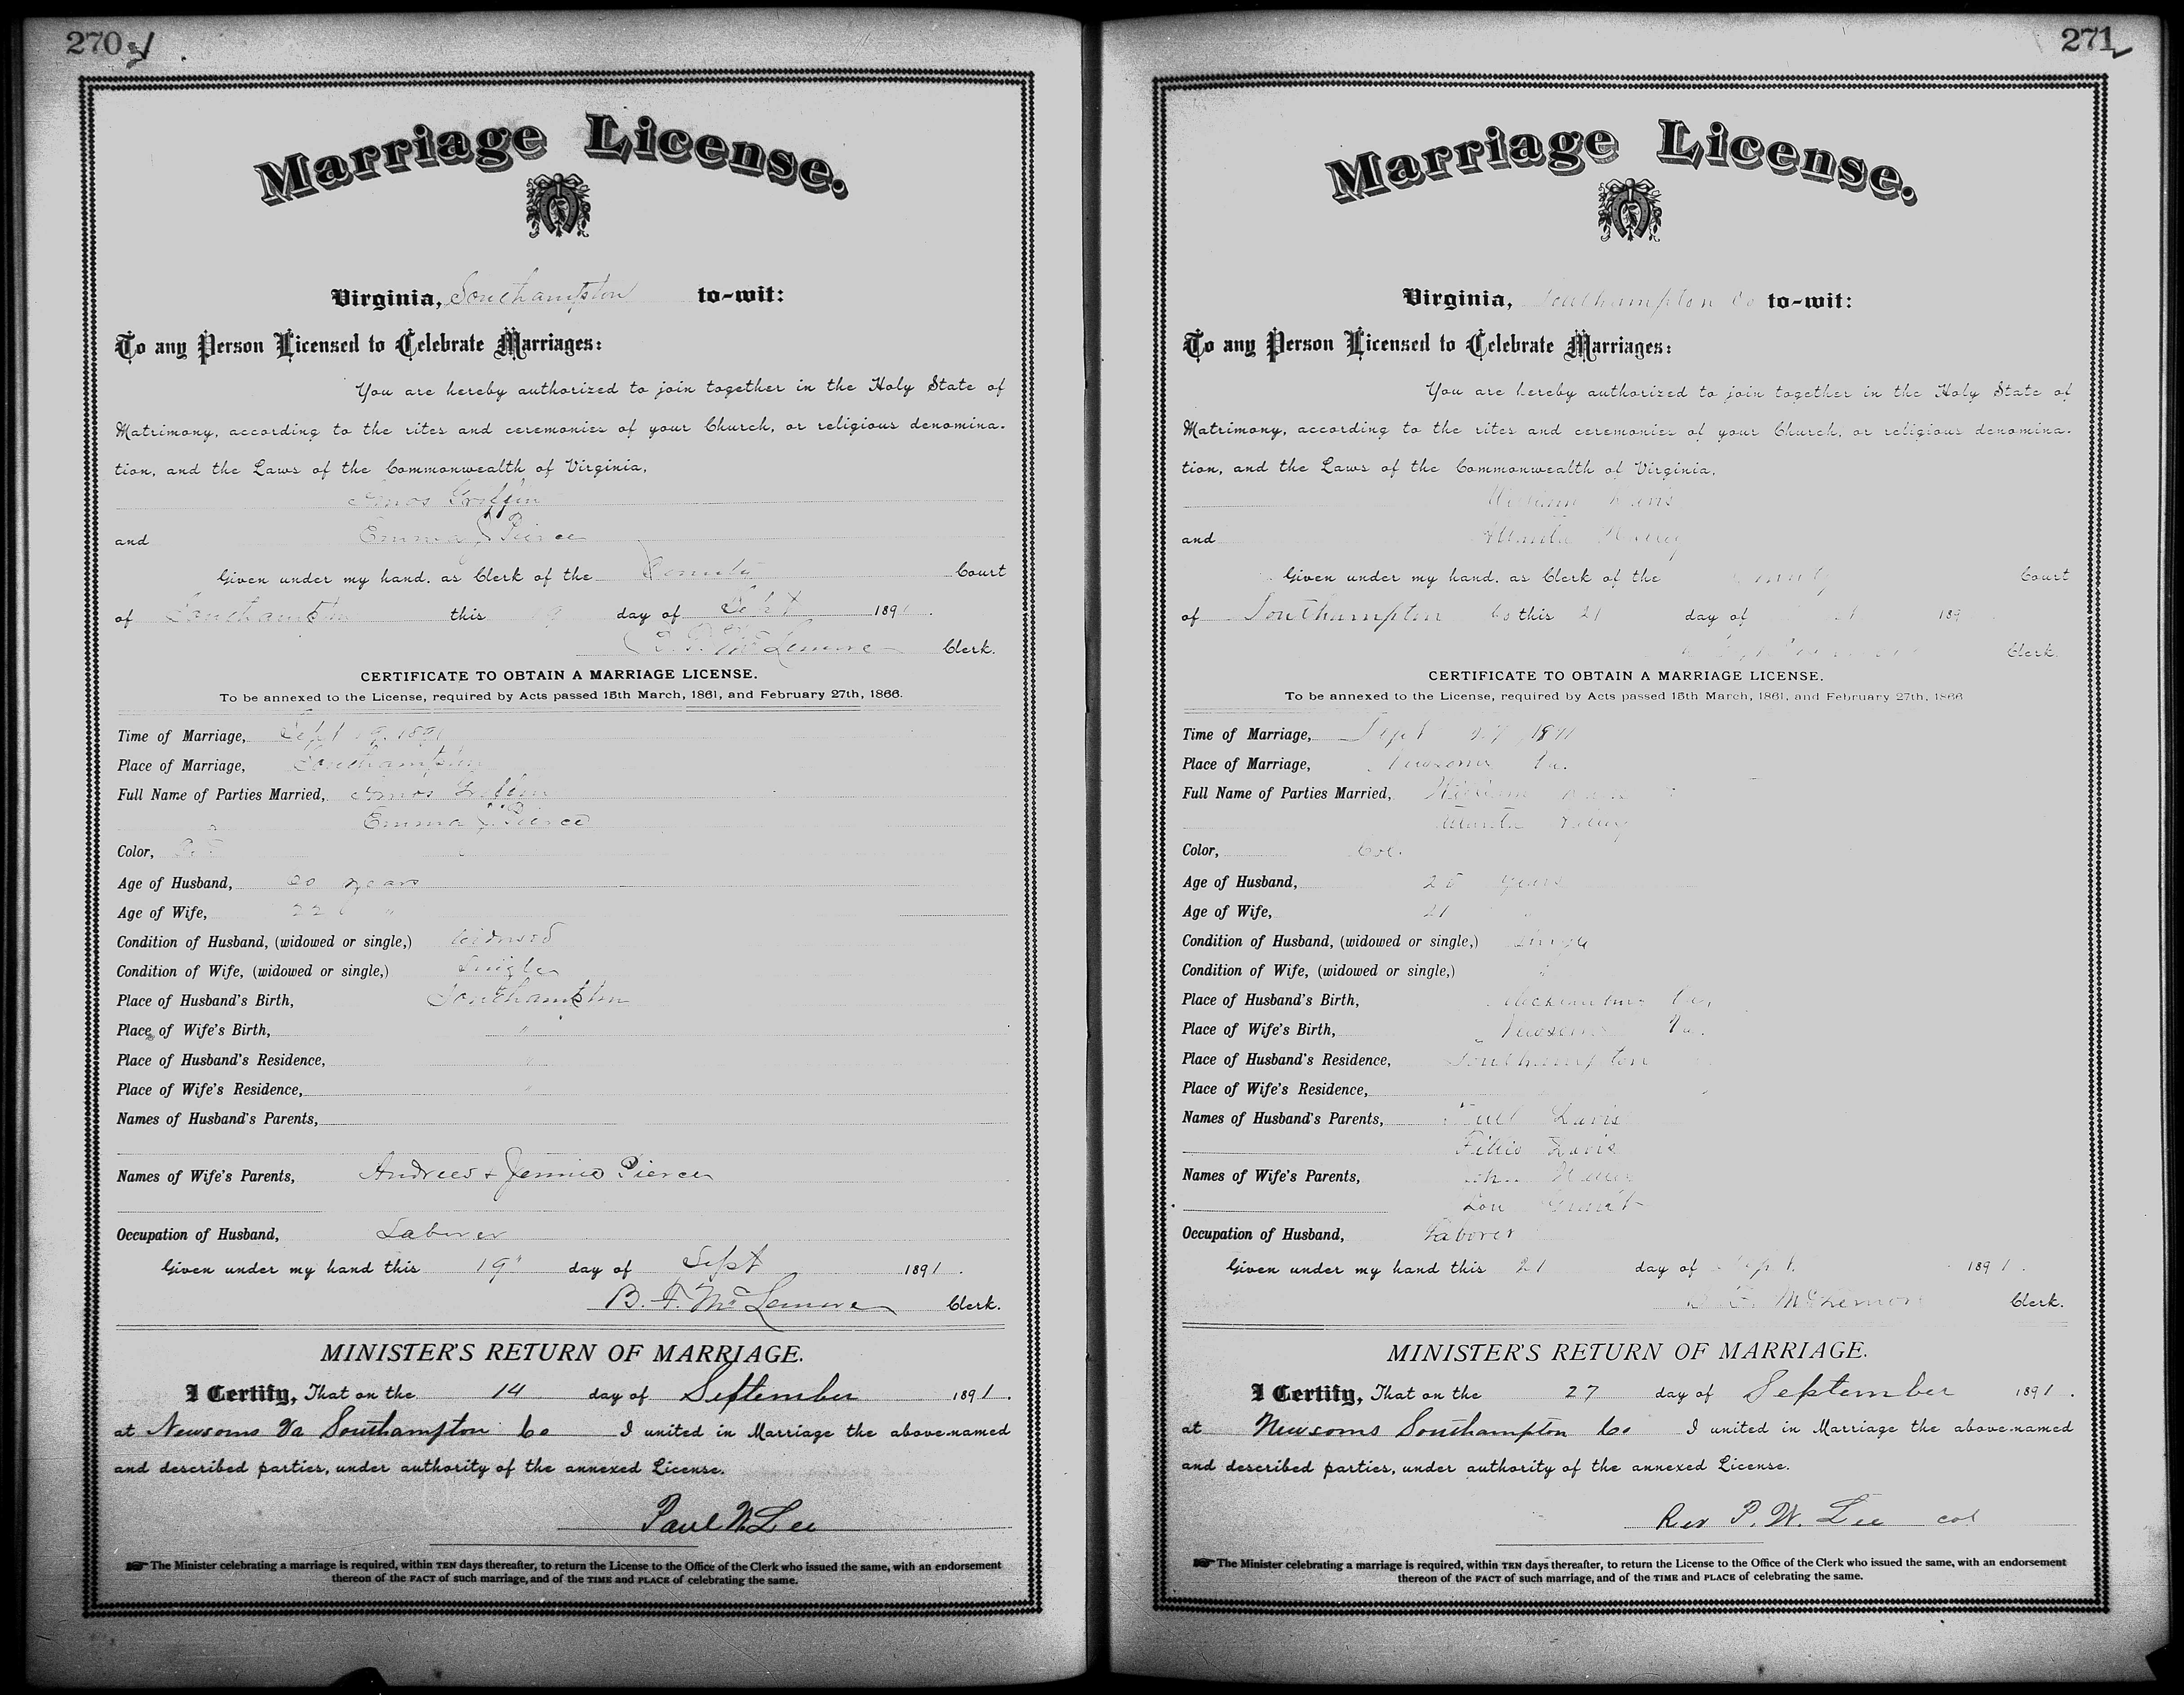 270
Marriage License.
Virginia, Southampton to-wit:
To any Person Licensed to Celebrate Marriages:
You are hereby authorized to join together in the Holy State of
Matrimony, according to the rites and ceremonies of your Church, or religious denomina-
tion, and the Laws of the Commonwealth of Virginia,
Amos Griffin
and Emma J Pierce
Given under my hand, as Clerk of the County Court
of Southampton this 19 day of Sept 1891.
McLemore Clerk.
CERTIFICATE TO OBTAIN A MARRIAGE LICENSE.
To be annexed to the License, required by Acts passed 15th March, 1861, and February 27th, 1866.
Time of Marriage, Sept 19, 1891
Place of Marriage, Southampton
Full Name of Parties Married, Amos Griffin
Emma J. Pierce
Color,
Age of Husband, years
Age of Wife, 22 "
Condition of Husband, (widowed or single,) Widowed
Condition of Wife, (widowed or single,) Single
Place of Husband's Birth, Southampton
Place of Wife's Birth, "
Place of Husband's Residence, "
Place of Wife's Residence, "
Names of Husband's Parents,
Names of Wife's Parents, Andrew + Jennie Pierce
Occupation of Husband, Laborer
Given under my hand this 19" day of Sept 1891.
B. F. McLemore Clerk.
MINISTER'S RETURN OF MARRIAGE.
I Certify, That on the 14 day of September 1891.
at Newsoms Va Southampton Co I united in Marriage the above-named
and described parties, under authority of the annexed License.
Paul W. Lee
The Minister celebrating a marriage is required, within TEN days thereafter, to return the License to the Office of the Clerk who issued the same, with an endorsement
thereon of the FACT of such marriage, and of the TIME and PLACE of celebrating the same.
271
Marriage License.
Virginia, Southampton Co to-wit:
To any Person Licensed to Celebrate Marriages:
You are hereby authorized to join together in the Holy State of
Matrimony, according to the rites and ceremonies of your Church, or religious denomina-
tion, and the Laws of the Commonwealth of Virginia,
William Davis
and
Given under my hand, as Clerk of the County Court
of Southampton Co this 21 day of 189
Clerk.
CERTIFICATE TO OBTAIN A MARRIAGE LICENSE.
To be annexed to the License, required by Acts passed 15th March, 1861, and February 27th, 1866
Time of Marriage, Sept 27, 1891
Place of Marriage, Newsoms Va.
Full Name of Parties Married, William
Color, Col.
Age of Husband, years
Age of Wife, 21 "
Condition of Husband, (widowed or single,) Single
Condition of Wife, (widowed or single,) "
Place of Husband's Birth, Va.
Place of Wife's Birth, Newsoms Va.
Place of Husband's Residence, Southampton
Place of Wife's Residence,
Names of Husband's Parents, Davis
Fillis Davis
Names of Wife's Parents, John
Lou
Occupation of Husband, Laborer
Given under my hand this 21 day of Sept. 1891.
B. F. McLemore Clerk.
MINISTER'S RETURN OF MARRIAGE.
I Certify, That on the 27 day of September 1891.
at Newsoms Southampton Co I united in Marriage the above-named
and described parties, under authority of the annexed License.
Rev P. W. Lee col
The Minister celebrating a marriage is required, within TEN days thereafter, to return the License to the Office of the Clerk who issued the same, with an endorsement
thereon of the FACT of such marriage, and of the TIME and PLACE of celebrating the same.